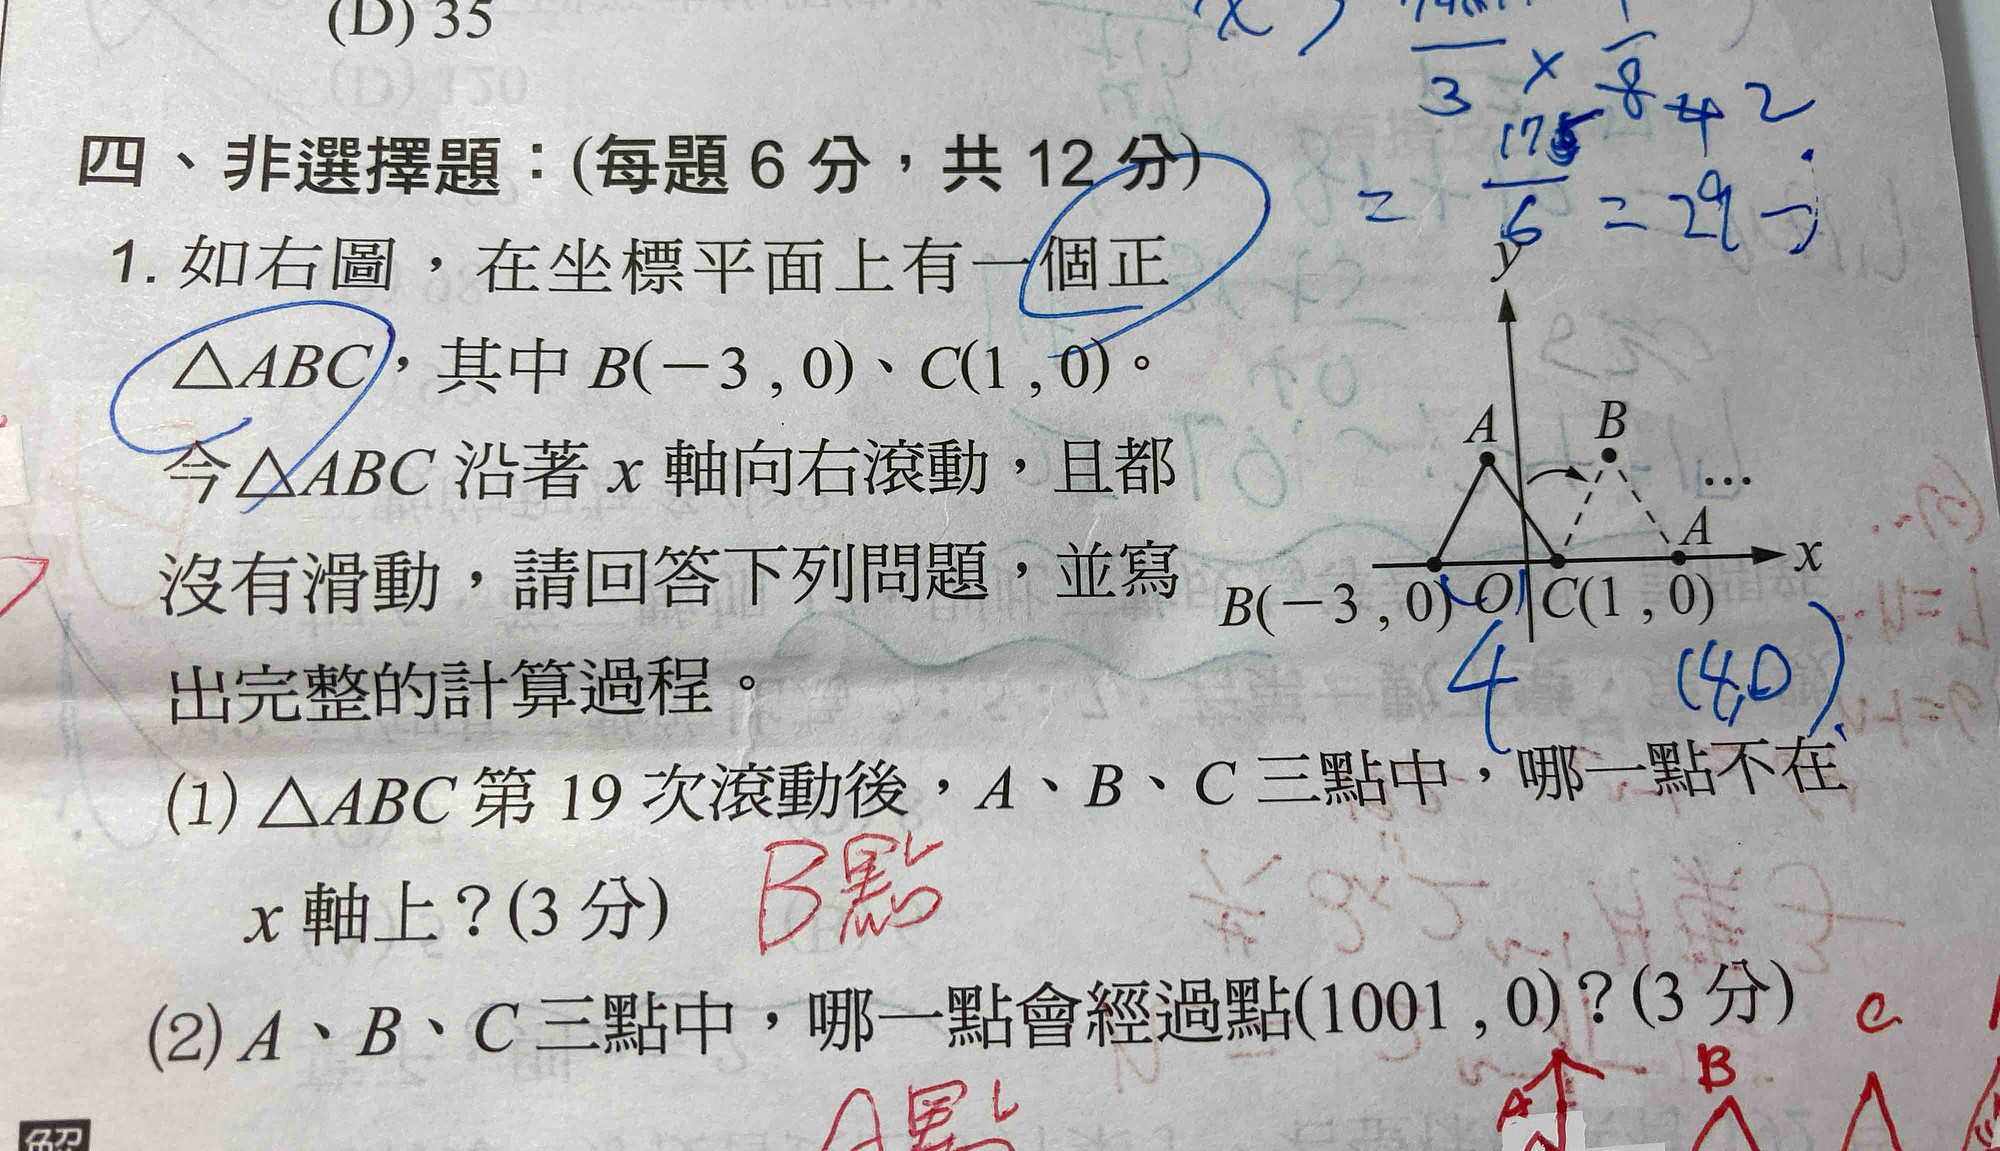 (D) 35
3 × 8 + 2
= 175
6 = 29
四、非選擇題：(每題 6 分，共 12 分)
1. 如右圖，在坐標平面上有一個正
△ABC，其中 B(－3 , 0)、C(1 , 0)。
今△ABC 沿著 x 軸向右滾動，且都
沒有滑動，請回答下列問題，並寫
出完整的計算過程。
y
A
B
…
A
x
B(－3 , 0)
O
C(1 , 0)
4
(4,0)
(1) △ABC 第 19 次滾動後，A、B、C 三點中，哪一點不在
x 軸上？(3 分)
B點
(2) A、B、C 三點中，哪一點會經過點(1001 , 0)？(3 分)
A點
A
B
C
解